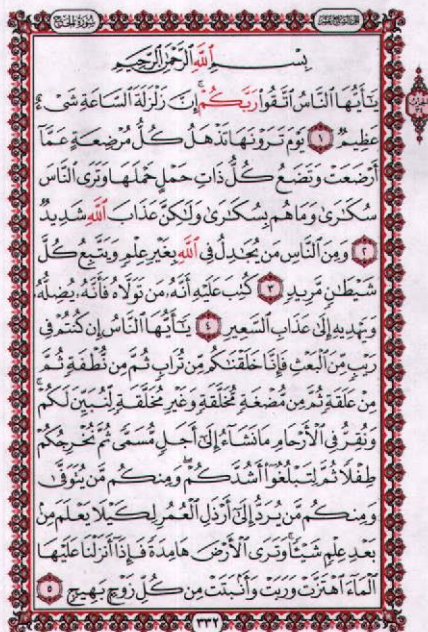 سُورَةُ الْحَجِّ
بِسْمِ اللَّهِ الرَّحْمَٰنِ الرَّحِيمِ
يَـٰٓأَيُّهَا ٱلنَّاسُ ٱتَّقُوا۟ رَبَّكُمْ ۚ إِنَّ زَلْزَلَةَ ٱلسَّاعَةِ شَىْءٌ
عَظِيمٌ ١ يَوْمَ تَرَوْنَهَا تَذْهَلُ كُلُّ مُرْضِعَةٍ عَمَّآ
أَرْضَعَتْ وَتَضَعُ كُلُّ ذَاتِ حَمْلٍ حَمْلَهَا وَتَرَى ٱلنَّاسَ
سُكَـٰرَىٰ وَمَا هُم بِسُكَـٰرَىٰ وَلَـٰكِنَّ عَذَابَ ٱللَّهِ شَدِيدٌ
٢ وَمِنَ ٱلنَّاسِ مَن يُجَـٰدِلُ فِى ٱللَّهِ بِغَيْرِ عِلْمٍ وَيَتَّبِعُ كُلَّ
شَيْطَـٰنٍ مَّرِيدٍ ٣ كُتِبَ عَلَيْهِ أَنَّهُۥ مَن تَوَلَّاهُ فَأَنَّهُۥ يُضِلُّهُۥ
وَيَهْدِيهِ إِلَىٰ عَذَابِ ٱلسَّعِيرِ ٤ يَـٰٓأَيُّهَا ٱلنَّاسُ إِن كُنتُمْ فِى
رَيْبٍ مِّنَ ٱلْبَعْثِ فَإِنَّا خَلَقْنَـٰكُم مِّن تُرَابٍ ثُمَّ مِن نُّطْفَةٍ ثُمَّ
مِنْ عَلَقَةٍ ثُمَّ مِن مُّضْغَةٍ مُّخَلَّقَةٍ وَغَيْرِ مُخَلَّقَةٍ لِّنُبَيِّنَ لَكُمْ ۚ
وَنُقِرُّ فِى ٱلْأَرْحَامِ مَا نَشَآءُ إِلَىٰٓ أَجَلٍ مُّسَمًّى ثُمَّ نُخْرِجُكُمْ
طِفْلًا ثُمَّ لِتَبْلُغُوٓا۟ أَشُدَّكُمْ ۖ وَمِنكُم مَّن يُتَوَفَّىٰ
وَمِنكُم مَّن يُرَدُّ إِلَىٰٓ أَرْذَلِ ٱلْعُمُرِ لِكَيْلَا يَعْلَمَ مِنۢ
بَعْدِ عِلْمٍ شَيْـًٔا ۚ وَتَرَى ٱلْأَرْضَ هَامِدَةً فَإِذَآ أَنزَلْنَا عَلَيْهَا
ٱلْمَآءَ ٱهْتَزَّتْ وَرَبَتْ وَأَنۢبَتَتْ مِن كُلِّ زَوْجٍۭ بَهِيجٍ ٥
٣٣٢